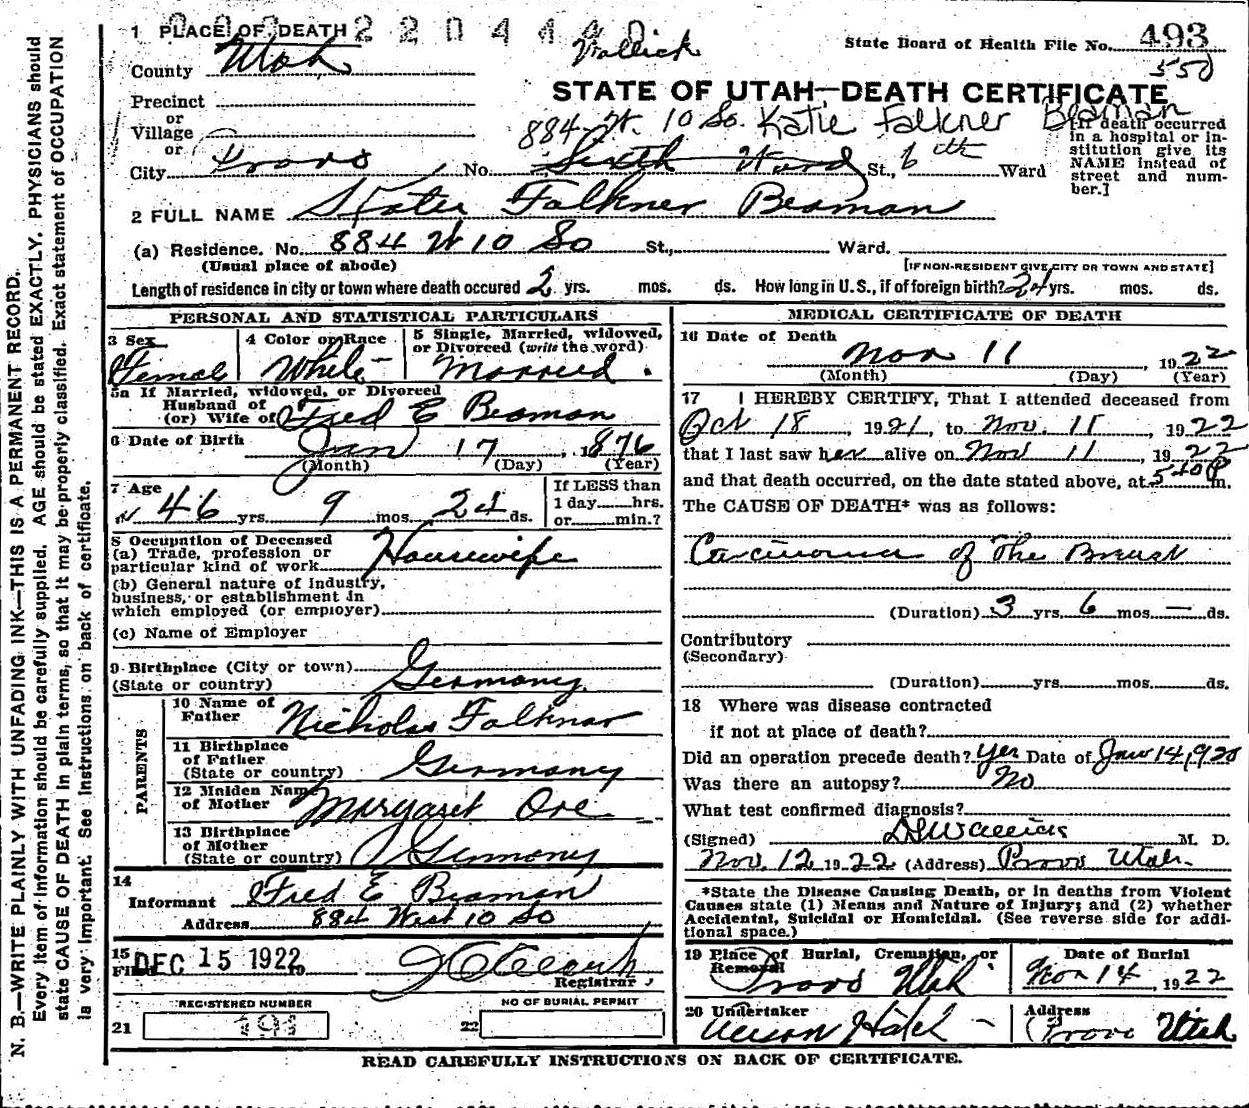 1 PLACE OF DEATH 2 2 0 4 4 4 0
Wallick
State Board of Health File No. 493
550
County Utah
STATE OF UTAH—DEATH CERTIFICATE
Precinct
or
Village
or
884 W. 10 So. Katie Falkner Beaman
City Provo No. Sixth Ward St., 6th Ward
[If death occurred in a hospital or institution give its NAME instead of street and number.]
2 FULL NAME Katie Falkner Beaman
(a) Residence. No. 884 W 10 So St., Ward.
(Usual place of abode) [IF NON-RESIDENT GIVE CITY OR TOWN AND STATE]
Length of residence in city or town where death occured 2 yrs. mos. ds. How long in U.S., if of foreign birth? 24 yrs. mos. ds.
PERSONAL AND STATISTICAL PARTICULARS
3 Sex Female
4 Color or Race White
5 Single, Married, widowed, or Divorced (write the word) Married.
5a If Married, widowed, or Divorced
Husband of
(or) Wife of Fred E Beaman
6 Date of Birth Jan 17, 1876
(Month) (Day) (Year)
7 Age 46 yrs. 9 mos. 24 ds.
If LESS than
1 day hrs.
or min.?
8 Occupation of Deceased
(a) Trade, profession or
particular kind of work Housewife
(b) General nature of Industry,
business, or establishment in
which employed (or employer)
(c) Name of Employer
9 Birthplace (City or town)
(State or country) Germany
PARENTS
10 Name of
Father Nicholas Falkner
11 Birthplace
of Father
(State or country) Germany
12 Maiden Name
of Mother Margaret Ore
13 Birthplace
of Mother
(State or country) Germany
14
Informant Fred E Beaman
Address 884 West 10 So
15
Filed DEC 15 1922
Registrar
REGISTERED NUMBER
21 191
NO OF BURIAL PERMIT
22
MEDICAL CERTIFICATE OF DEATH
16 Date of Death
Nov 11, 1922
(Month) (Day) (Year)
17 I HEREBY CERTIFY, That I attended deceased from
Oct 18, 1921, to Nov. 11, 1922
that I last saw her alive on Nov 11, 1922
and that death occurred, on the date stated above, at 5 40 P m.
The CAUSE OF DEATH* was as follows:
Carcinoma of The Breast
(Duration) 3 yrs. 6 mos. — ds.
Contributory
(Secondary)
(Duration) yrs. mos. ds.
18 Where was disease contracted
if not at place of death?
Did an operation precede death? Yes Date of Jan 14, 1920
Was there an autopsy? No
What test confirmed diagnosis?
(Signed) Wallick M. D.
Nov. 12 1922 (Address) Provo Utah.
*State the Disease Causing Death, or in deaths from Violent
Causes state (1) Menns and Nature of Injury; and (2) whether
Accidental, Suicidal or Homicidal. (See reverse side for addi-
tional space.)
19 Place of Burial, Cremation, or
Removal Provo Utah
Date of Burial
Nov 14, 1922
20 Undertaker
Hatch
Address
Provo Utah
READ CAREFULLY INSTRUCTIONS ON BACK OF CERTIFICATE.
N. B.—WRITE PLAINLY WITH UNFADING INK—THIS IS A PERMANENT RECORD.
Every item of information should be carefully supplied. AGE should be stated EXACTLY. PHYSICIANS should
state CAUSE OF DEATH in plain terms, so that it may be properly classified. Exact statement of OCCUPATION
is very important. See instructions on back of certificate.